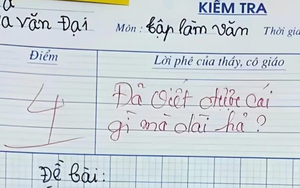 KIỂM TRA
a văn Đại
Môn: tập làm văn
Thời gia
Điểm
Lời phê của thầy, cô giáo
4
Đã viết được cái
gì mà dài hả?
Đề bài: